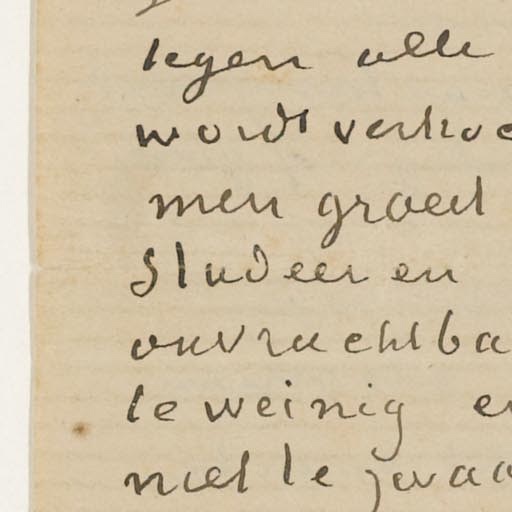 tegen alle
wordt verkoc
men groeit
studeer en
onvruchtba
te weinig en
niet te zwaa